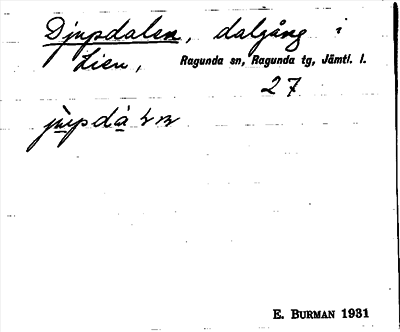 Djupdalen, dalgång i
Lien, Ragunda sn, Ragunda tg, Jämtl. l.
27
E. BURMAN 1931